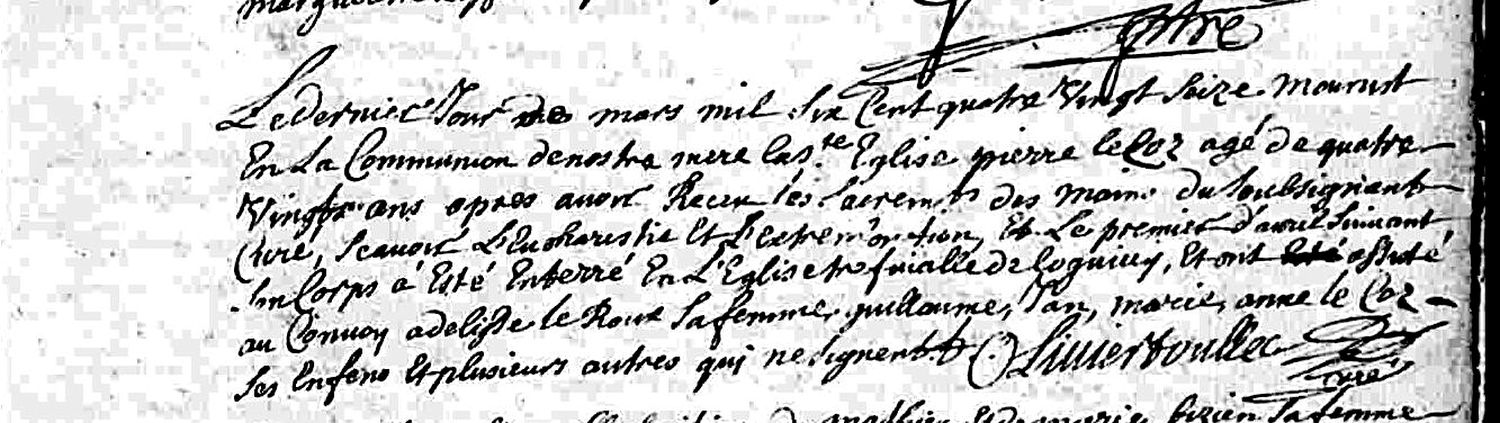 Le dernier Jour de mars mil six Cent quatre Vingt seize mourust
En La Communion de nostre mere la s.te Eglise pierre le Coz agé de quatre
Vingts ans apres avoir Receu les sacrem.ts des mains du soubsignant
Curé, scavoir L'Eucharistie Et L'extremonction, Et Le premier d'avril suivant
son Corps à Esté Enterré En L'Eglise trefvialle de Coquivy, Et ont assisté
au Convoy adelisse le Roux sa femme, guillaume, Jan, marie, anne le Coz
ses Enfens Et plusieurs autres qui ne signent
Curé
marie sa femme